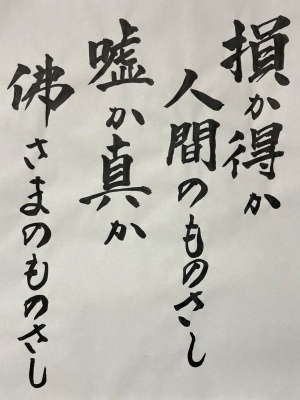 損か得か
人間のものさし
嘘か真か
佛さまのものさし